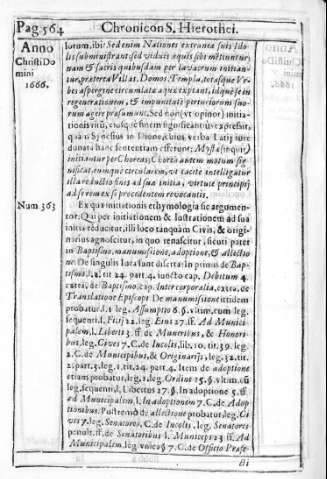 Pag 564 Chronicon S. Hierothei.
Anno
Christi Do
mini
1666.
lorum, ibi: Sed enim Nationes extraneæ suis Ido
lis subministrant sed viduis aquis sibi mentiuntur;
nam & sacris quibusdam per lavacrum initian-
tur, præterea Villas, Domos, Templa, totasque Vr-
bes aspergine circumlatæ aquæ expiant, idque se in
regenerationem, & impunitatē periuriorum suo-
rum agere præsumunt. Sed non (vt opinor) initia-
tionis
qua v. Synesius in Dione,
donare hanc sententiam censuere: Mystæ sicut)
initiantur per Choreas; Chorea autem motum sig-
nificat, eumque circularem, vt tacitè intelligatur
illa reductio finis ad sua initia, virtute principij
ad se rem ex se procedentem revocantis.
Num 363
Ex qua initiationis ethymologia sic argumen-
tor. Qui per initiationem & lustrationem ad sua
initia reducitur, illi loco tanquàm Civis, & origi-
narius agnoscitur, in quo renascitur, sicuti patet
in Baptismo, manumisione, adoptione, & allectio
ne. De singulis Iura sunt diserta: In primis de Bap-
tismo, l. 2. tit 24. part. 4. iuncto cap. Debitum 4.
extra, de Baptismo, cap. Inter corporalia, extra, de
Translatione Episcopi. De manumisione itidem
probatur, l. 1. leg. Assumptio 6. §. vltim. cum leg.
sequenti, l. Filij 22. leg. Eius 27. ff. Ad Munici-
palem, l. Libertus 3. ff. de Muneribus, & Honori-
bus, leg. Cives 7. C. de Incolis, lib. 10. tit. 39. leg.
2. C. de Municipibus, & Originarijs, leg. 32. tit.
2. part. 3. leg. 1. tit. 24. part. 4. Item de adoptione
etiam probatur, leg. 1. leg. Ordine 15. §. vltim. cū
leg. sequenti, l. Libertus 17. §. In adoptione 5. ff.
ad Municipalem, l. In adoptionem 7. C. de Adop
tionibus. Postremò de allectione probatur, leg. Ci
ves 7. leg. Senatores. C. de Incolis, leg. Senatores
penult. ff. de Senatoribus, l. Municipes 23. ff. Ad
Municipalem, leg. vnica § 7. C. de Officio Præfe-